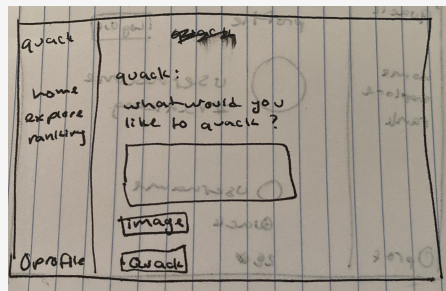 quack
home
explore
ranking
profile
quack:
what would you
like to quack?
image
Quack